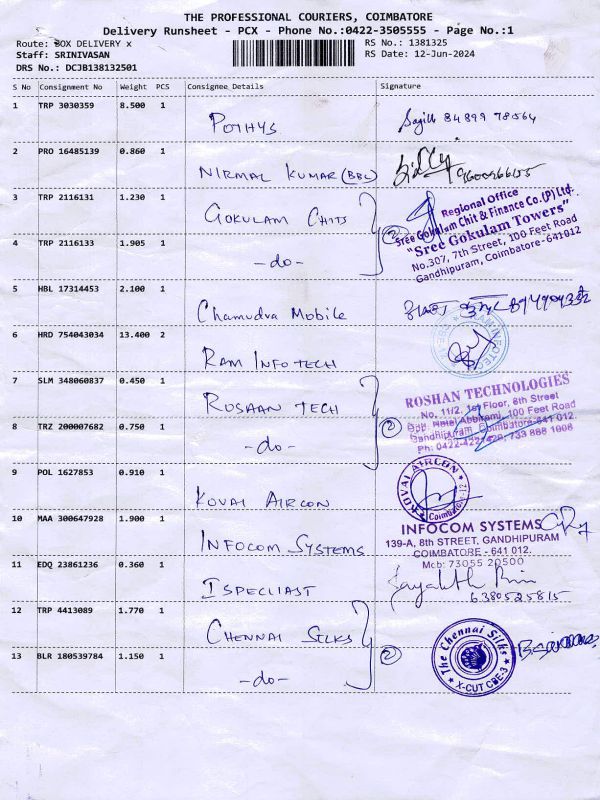 THE PROFESSIONAL COURIERS, COIMBATORE
Delivery Runsheet - PCX - Phone No.:0422-3505555 - Page No.:1
Route: BOX DELIVERY x
RS No.: 1381325
Staff: SRINIVASAN
RS Date: 12-Jun-2024
DRS No.: DCJB138132501
S No Consignment No Weight PCS Consignee Details Signature
1 TRP 3030359 8.500 1
POTHYS
84899 78564
2 PRO 16485139 0.860 1
NIRMAL KUMAR (BBL)
3 TRP 2116131 1.230 1
GOKULAM CHITS
2
Regional Office
Sree Gokulam Chit & Finance Co.(P) Ltd.
"Sree Gokulam Towers"
No.307, 7th Street, 100 Feet Road
Gandhipuram, Coimbatore-641012
4 TRP 2116133 1.905 1
-do-
5 HBL 17314453 2.100 1
Chamudra Mobile
6 HRD 754043034 13.400 2
RAM INFOTECH
7 SLM 348060837 0.450 1
ROSHAN TECH
2
ROSHAN TECHNOLOGIES
No. 11/2, 1st Floor, 8th Street
Opp. Hotel Abbirami, 100 Feet Road
Gandhipuram, Coimbatore-641 012.
Ph: 0422-4221429, 733 888 1008
8 TRZ 200007682 0.750 1
-do-
9 POL 1627853 0.910 1
KOVAI AIRCON
KOVAI AIRCON
Coimbatore-12
10 MAA 300647928 1.900 1
INFOCOM SYSTEMS
INFOCOM SYSTEMS
139-A, 8th STREET, GANDHIPURAM
COIMBATORE - 641 012.
Mob: 73055 20500
11 EDQ 23861236 0.360 1
ISPECLIAST
6380525815
12 TRP 4413089 1.770 1
CHENNAI SILKS
2
The Chennai Silks
X-CUT CBE-3
13 BLR 180539784 1.150 1
-do-